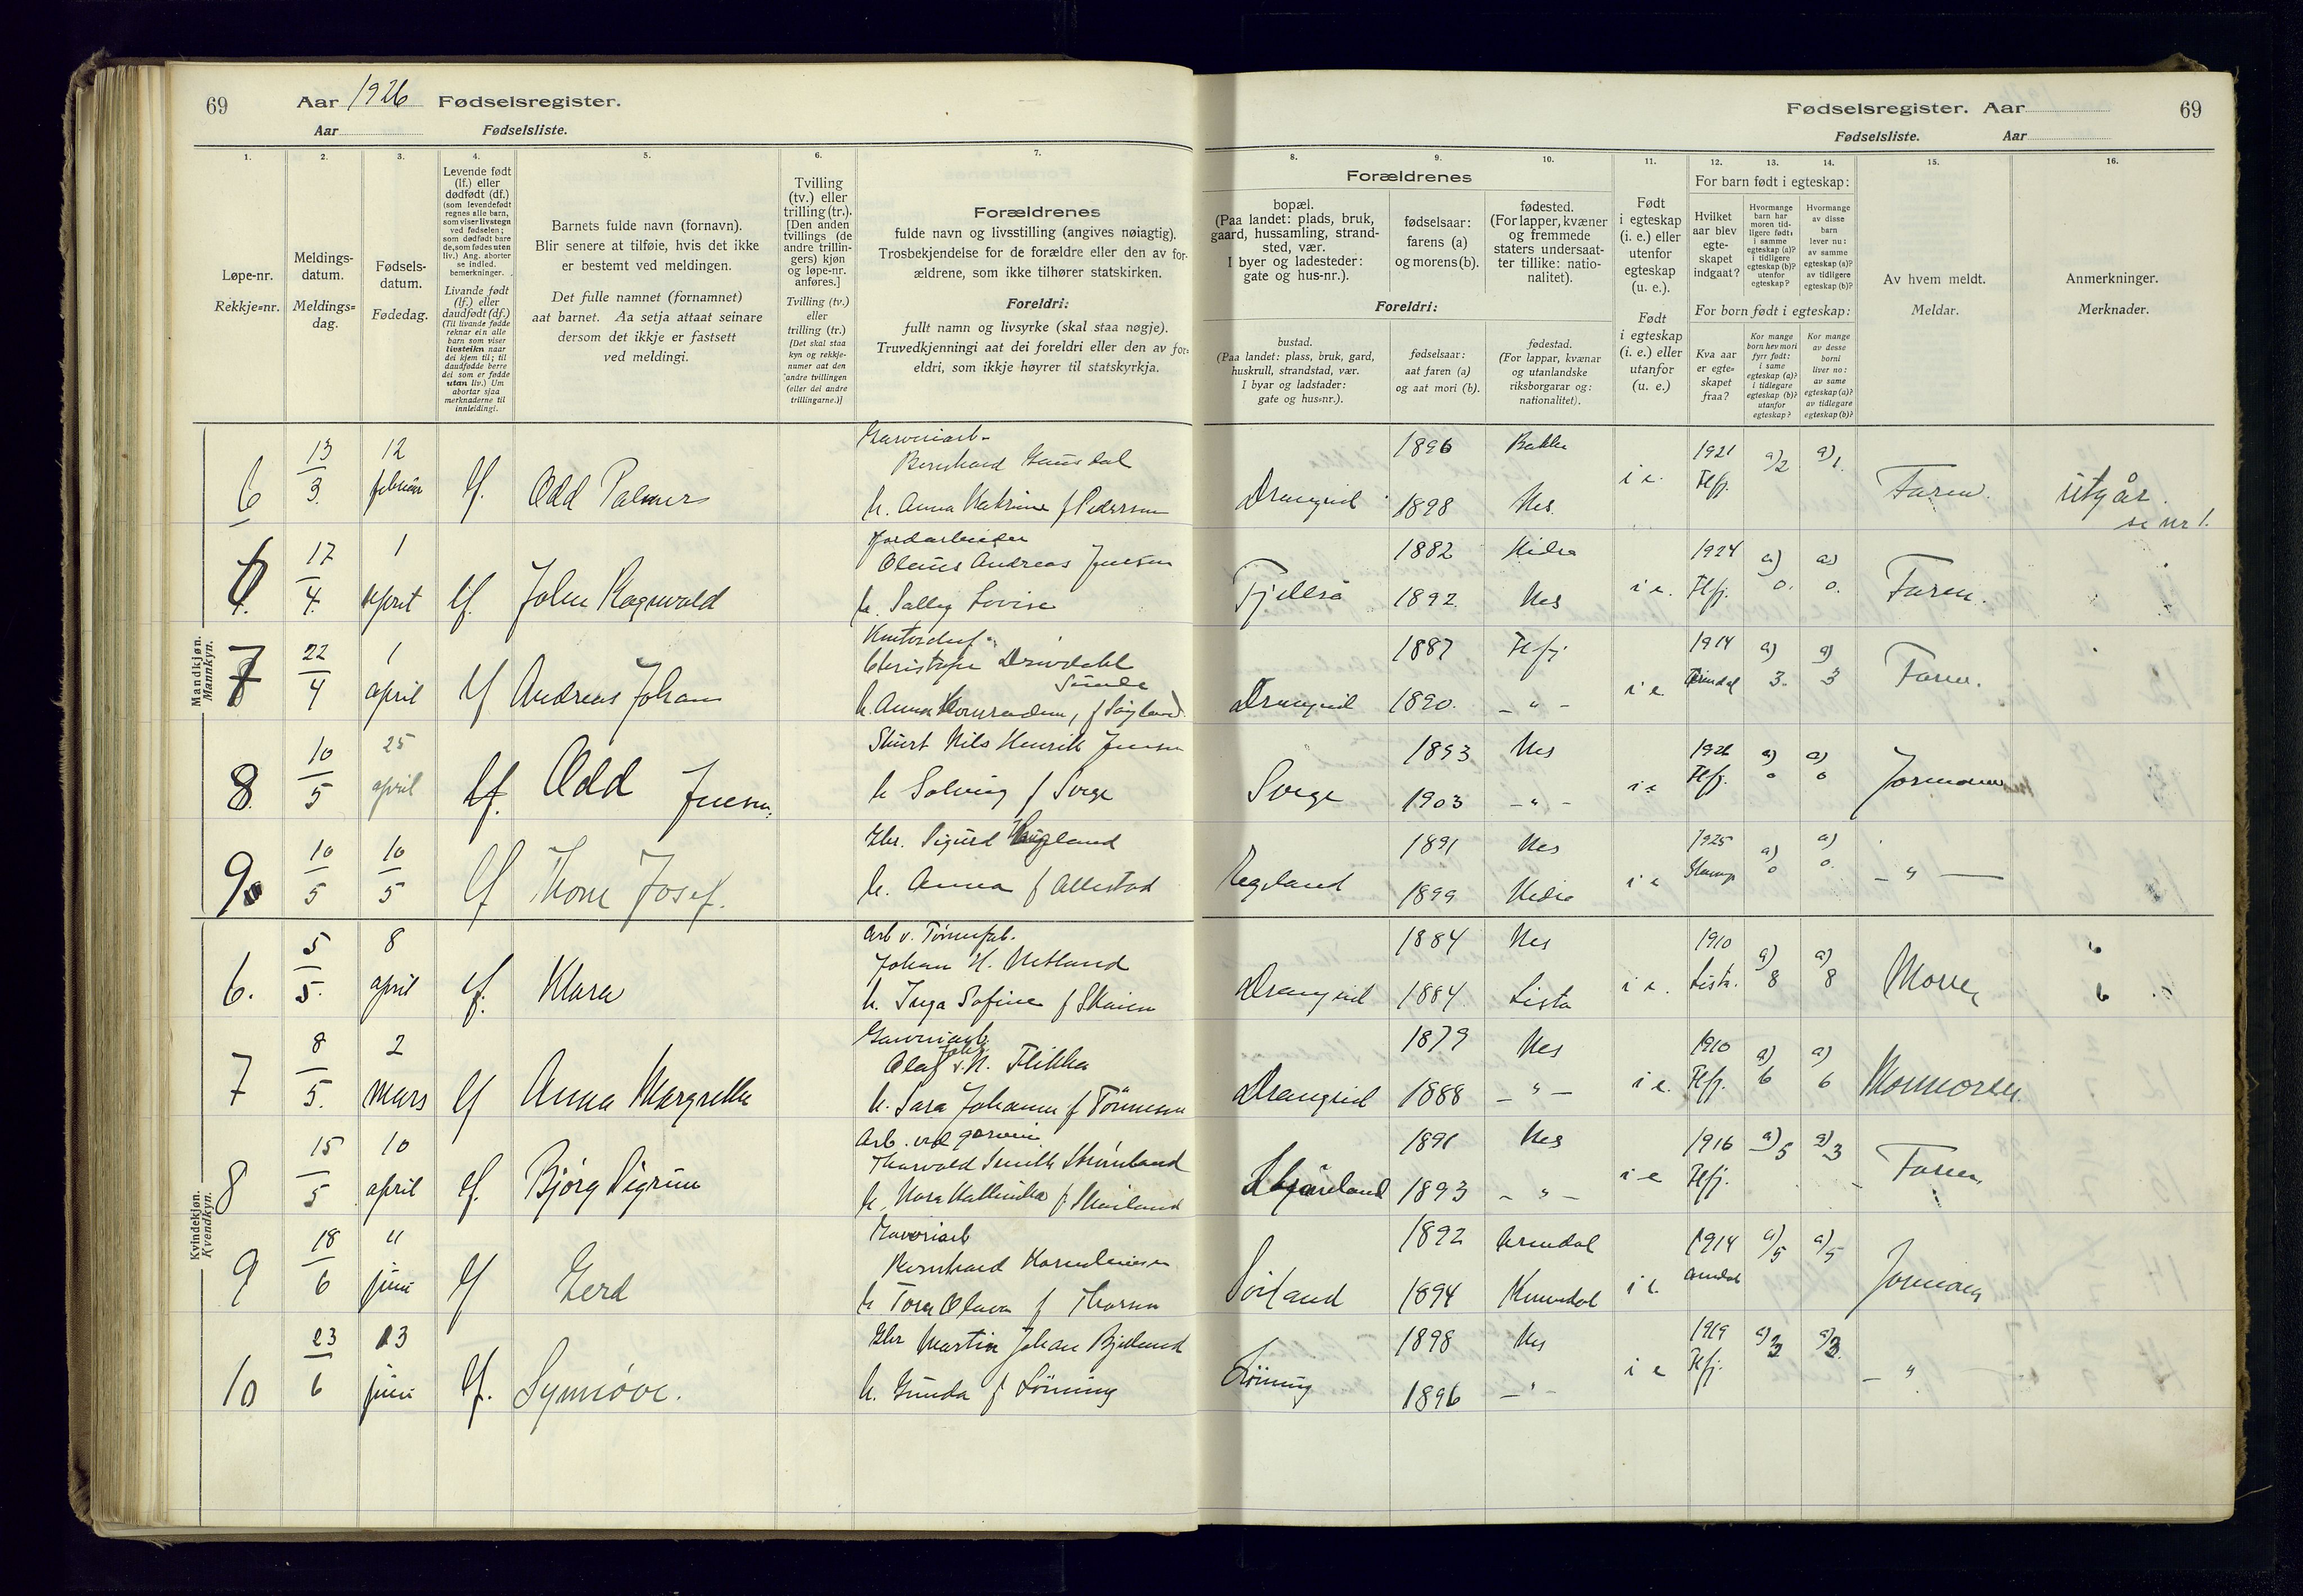 69 Aar 1926 Fødselsregister.
Aar Fødselsliste.
Fødselsregister. Aar 69
Fødselsliste. Aar
1. 2. 3. 4. 5. 6. 7. 8. 9. 10. 11. 12. 13. 14. 15. 16.
Løpe-nr.
Rekkje-nr.
Meldings-
datum.
Meldings-
dag.
Fødsels-
datum.
Fødedag.
Levende født
(lf.) eller
dødfødt (df.)
(som levendefødt
regnes alle barn,
som viser livstegn
ved fødselen;
som dødfødt bare
de, som fødes uten
liv.) Ang. aborter
se indled.
bemerkninger.
Livande født
(lf.) eller
daudfødt (df.)
(Til livande fødde
reknar ein alle
barn som viser
livsteikn naar
dei kjem til; til
daudfødde berre
dei som er fødde
utan liv.) Um
abortar sjaa
merknaderne til
innleidingi.
Barnets fulde navn (fornavn).
Blir senere at tilføie, hvis det ikke
er bestemt ved meldingen.
Det fulle namnet (fornamnet)
aat barnet. Aa setja attaat seinare
dersom det ikkje er fastsett
ved meldingi.
Tvilling
(tv.) eller
trilling (tr.).
[Den anden
tvillings (de
andre trillin-
gers) kjøn
og løpe-nr.
anføres.]
Tvilling (tv.)
eller
trilling (tr.)
[Det skal staa
kyn og rekkje-
numer aat den
andre tvillingen
(eller dei andre
trillingarne.)]
Forældrenes
fulde navn og livsstilling (angives nøiagtig).
Trosbekjendelse for de forældre eller den av for-
ældrene, som ikke tilhører statskirken.
Foreldri:
fullt namn og livsyrke (skal staa nøgje).
Truvedkjenningi aat dei foreldri eller den av for-
eldri, som ikkje høyrer til statskyrkja.
Forældrenes
bopæl.
(Paa landet: plads, bruk,
gaard, hussamling, strand-
sted, vær.
I byer og ladesteder:
gate og hus-nr.).
fødselsaar:
farens (a)
og morens (b).
fødested.
(For lapper, kvæner
og fremmede
staters undersaat-
ter tillike: natio-
nalitet).
Foreldri:
bustad.
(Paa landet: plass, bruk, gard,
huskrull, strandstad, vær.
I byar og ladstader:
gate og hus-nr.).
fødselsaar:
aat faren (a)
og aat mori (b).
fødestad.
(For lappar, kvænar
og utanlandske
riksborgarar og:
nationalitet).
Født
i egteskap
(i. e.) eller
utenfor
egteskap
(u. e.).
Født
i egteskap
(i. e.) eller
utanfor
(u. e.)
For barn født i egteskap:
Hvilket
aar blev
egte-
skapet
indgaat?
Hvormange
barn har
moren tid-
ligere født:
i samme
egteskap (a)?
i tidligere
egteskap (b)?
utenfor
egteskap?
Hvormange
av disse
barn
lever nu:
av samme
egteskap (a)?
av tidligere
egteskap (b)?
For born født i egteskap:
Kva aar
er egte-
skapet
fraa?
Kor mange
born hev mori
fyrr født:
i same
egteskap (a)?
i tidlegare
egteskap (b)?
utanfor
egteskap?
Kor mange
av desse
borni
liver no:
av same
egteskap (a)?
av tidlegare
egteskap (b)?
Av hvem meldt.
Meldar.
Anmerkninger.
Merknader.
Mandkjøn.
Mannkyn.
6 13/3. 12 februar lf. Odd Palmer
Garveriarb.
Bernhard Gausdal
h. Anna Katrine f Pedersen
Drangeid 1896 Bakke
1898 Nes
i e. 1921 Flfj. a) 2 a) 1. Faren. utgår.
se nr 1.
6 17/4. 1 april lf. John Ragnvald
Jordarbeider
Olaus Andreas Jensen
h. Sally Lovise
Fjellså 1882 Hidra
1892 Nes
i e. 1924 Flfj. a) 0. a) 0. Faren.
7 22/4 1 april lf Andreas Johan
Drangeid 1887 Flfj
1890. - " -
i e 1914 a) 3. a) 3 Faren.
8. 10/5 25 april lf. Odd Jensen.
Stuert Nils Henrik Jensen
h Solveig f Svege
Svege 1893 Nes
1903 - " -
i e 1926 Flfj. a) 0 a) 0 Jormoren
9 10/5 10/5 lf Thom Josef.
Gbr. Sigurd
h. Anna f Allestad
1891 Nes
1899 Hidra
i e 1925 a) 0 a) 0. - " -
Kvindekjøn.
Kvendkyn.
6. 5/5. 8 april lf. Klara
Arb v. Tønnefab.
Johan H. Netland
h. Inga Sofine f
Drangeid 1884 Nes
1884 Lista
i e. 1910 Lista. a) 8 a) 8 Moren
7 8/5. 2 Mars lf Anna Margrethe
Garveriarb.
Olaf Flikka
h. Sara Johanne f Tønnesen
Drangeid 1879 Nes
1888 - " -
i e. 1910 Flfj. a) 6 a) 6 Mormoren.
8 15/5 10 april lf. Bjørg Sigrun
Arb. ved garveri
Thorvald
h.
1891 Nes
1893 - " -
i e 1916 Flfj. a) 5 a) 3 Faren.
9 18/6 11 juni lf Gerd
Garveriarb
Bernhard
h Tora Olava f Thorsen
1892 Arendal
1894
i e. 1914 Arendal a) 5 a) 5 Jormoren
10 23/6 13 juni lf. Synnöve.
Gbr Martin Johan
h. Gunda f Löining
Löining 1898 Nes
1896 - " -
i e 1919 Flfj. a) 3 a) 3. - " -